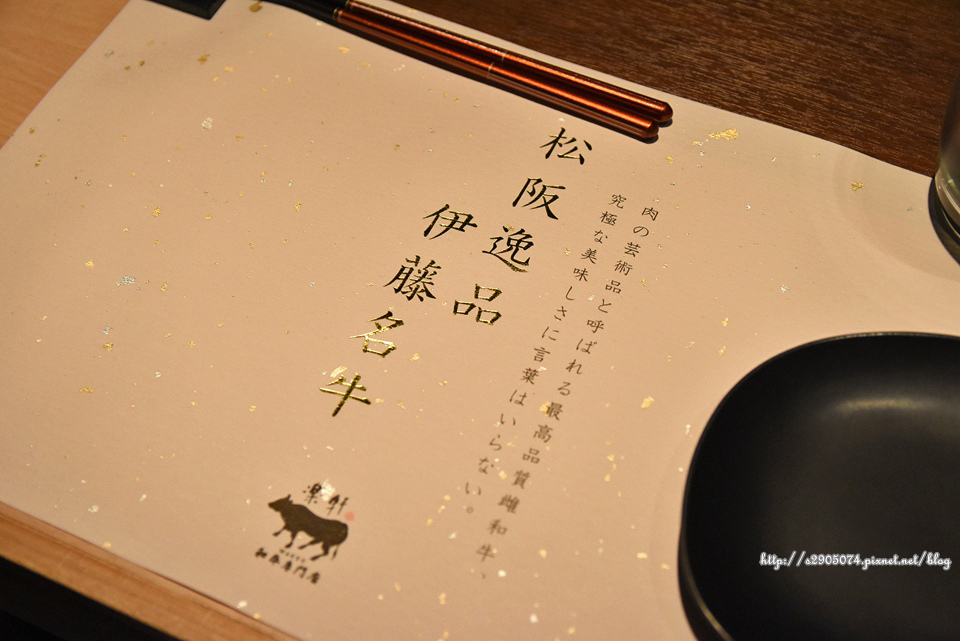 肉の芸術品と呼ばれる最高品質雌和牛、
究極な美味しさに言葉はいらない。
松阪逸品
伊藤名牛
樂軒
和牛專門店
http://s2905074.pixnet.net/blog